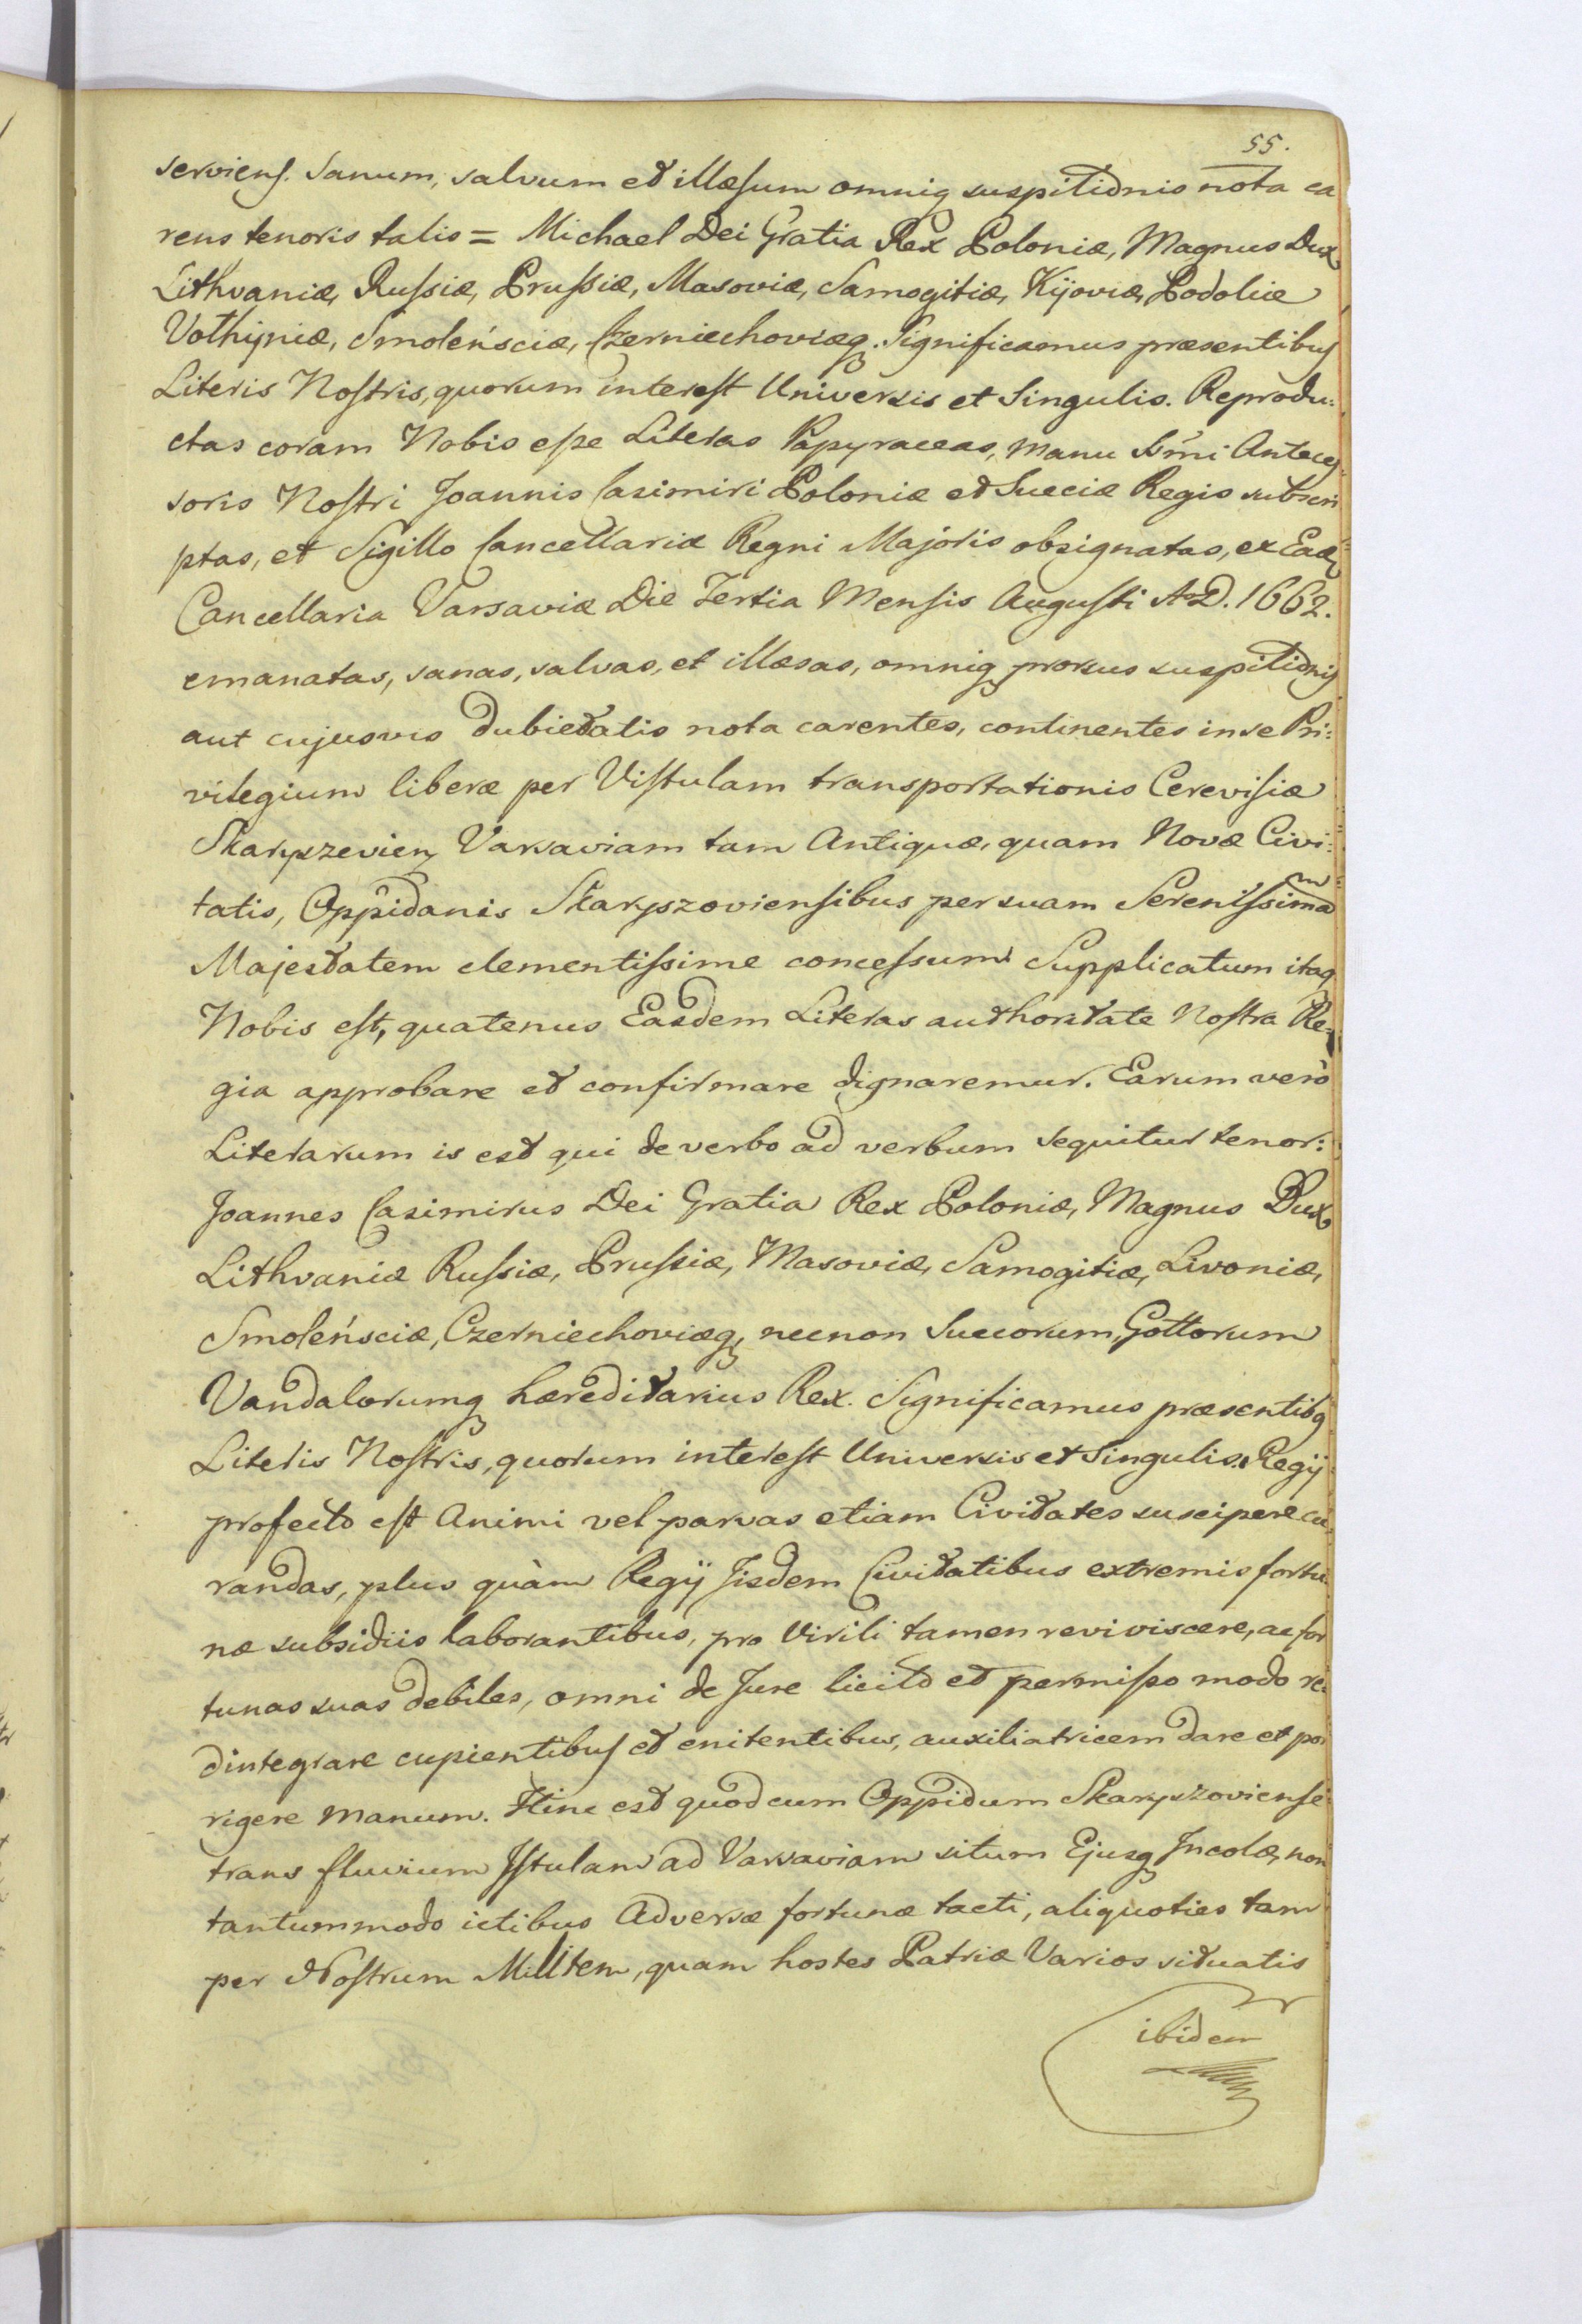 55.
serviens. Sanum, salvum et illæsum omniq suspitionis nota ca
rens tenoris talis = Michael Dei Gratia Rex Poloniæ, Magnus Dux
Lithvaniæ, Russiæ, Prussiæ, Masoviæ, Samogitiæ, Kijoviæ, Podoliæ
Volhijniæ, Smoleńsciæ, Czerniechoviæq. Significamus præsentibus
Literis Nostris, quorum interest Universis et Singulis. Reprodu:
ctas coram Nobis esse Literas Papyraceas, manu Srmi Anteces
soris Nostri Joannis Casimiri Poloniæ et Sueciæ Regis subscri
ptas, et Sigillo Cancellariæ Regni Majoris obsignatas, ex Eadē
Cancellaria Varsaviæ Die Tertia Mensis Augusti A.D. 1662.
emanatas, sanas, salvas, et illæsas, omniq prorsus suspitionis
aut cujusvis dubietatis nota carentes, continentes in se Pri:
vilegium liberæ per Vistulam transportationis Cerevisiæ
Skaryszevien, Varsaviam tam Antiquæ, quam Novæ Civi:
tatis, Oppidanis Skaryszoviensibus per suam Serenissimam
Majestatem clementissime concessum Supplicatum itaq
Nobis est, quatenus Easdem Literas authoritate Nostra Re:
gia approbare et confirmare dignaremur. Earum verò
Literarum is est qui de verbo ad verbum sequitur tenor:
Joannes Casimirus Dei Gratia Rex Poloniæ, Magnus Dux
Lithvaniæ Russiæ, Prussiæ, Masoviæ, Samogitiæ, Livoniæ,
Smoleńsciæ, Czerniechoviæq, necnon Suecorum, Gottorum
Vandalorumq hæreditarius Rex. Significamus præsentibq
Literis Nostris, quorum interest Universis et Singulis. Regij
profecto est Animi vel parvas etiam Civitates suscipere cu
randas, plus quàm Regij Jisdem Civitatibus extremis fortu
næ subsidiis laborantibus, pro virili tamen reviviscere, ac for
tunas suas debiles, omni de Jure licito et permisso modo re
dintegrare cupientibus et enitentibus, auxiliatricem dare et por
rigere manum. Hinc est quod cum Oppidum Skaryszoviense
trans fluvium Istulam ad Varsaviam situm Ejusq Incolæ, non
tantummodo ictibus Adversæ fortunæ tacti, aliquoties tam
per Nostrum Militem, quam hostes Patriæ Varios situatis
ibidem